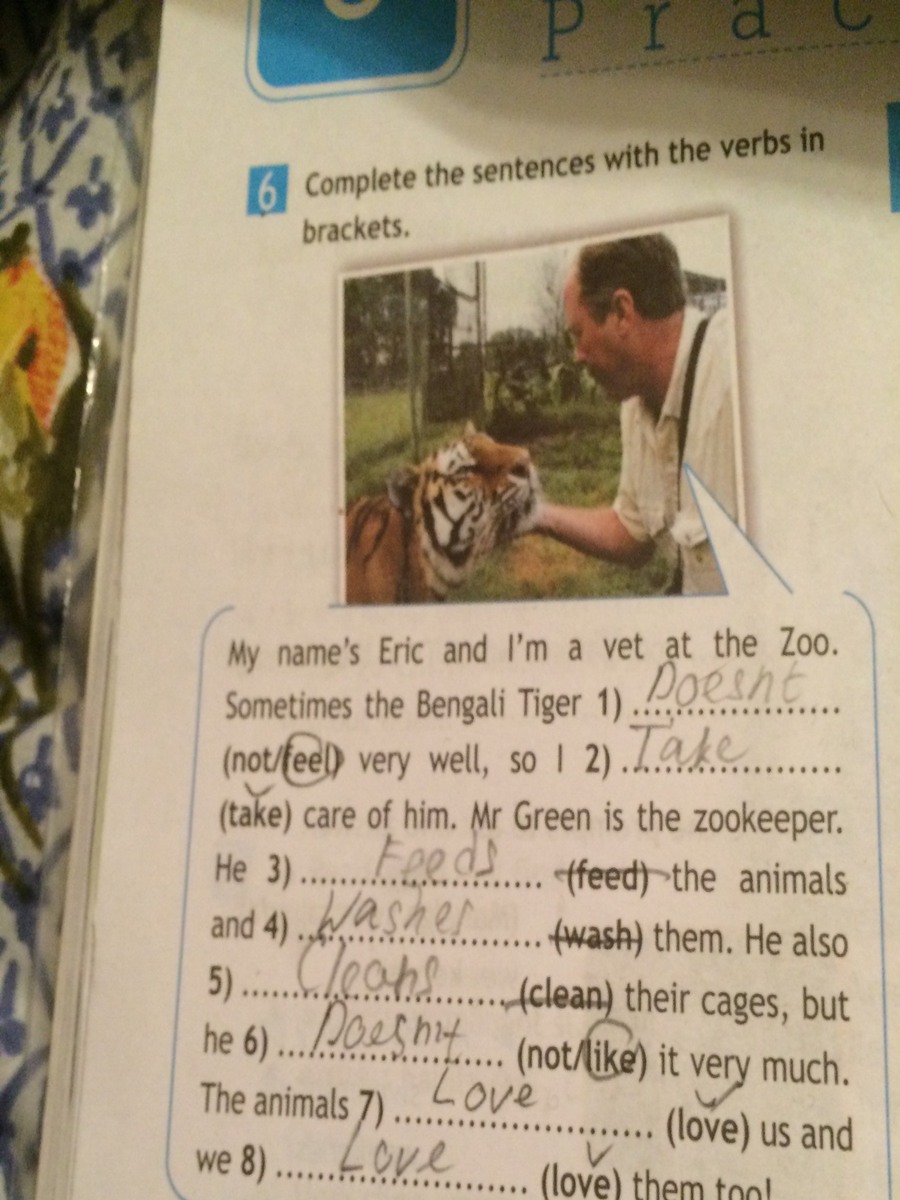 P r a c
6 Complete the sentences with the verbs in
brackets.
My name's Eric and I'm a vet at the Zoo.
Sometimes the Bengali Tiger 1) Doesnt
(not/feel) very well, so I 2) Take
(take) care of him. Mr Green is the zookeeper.
He 3) Feeds (feed) the animals
and 4) Washes (wash) them. He also
5) Cleans (clean) their cages, but
he 6) Doesn't (not/like) it very much.
The animals 7) Love (love) us and
we 8) Love (love) them too!